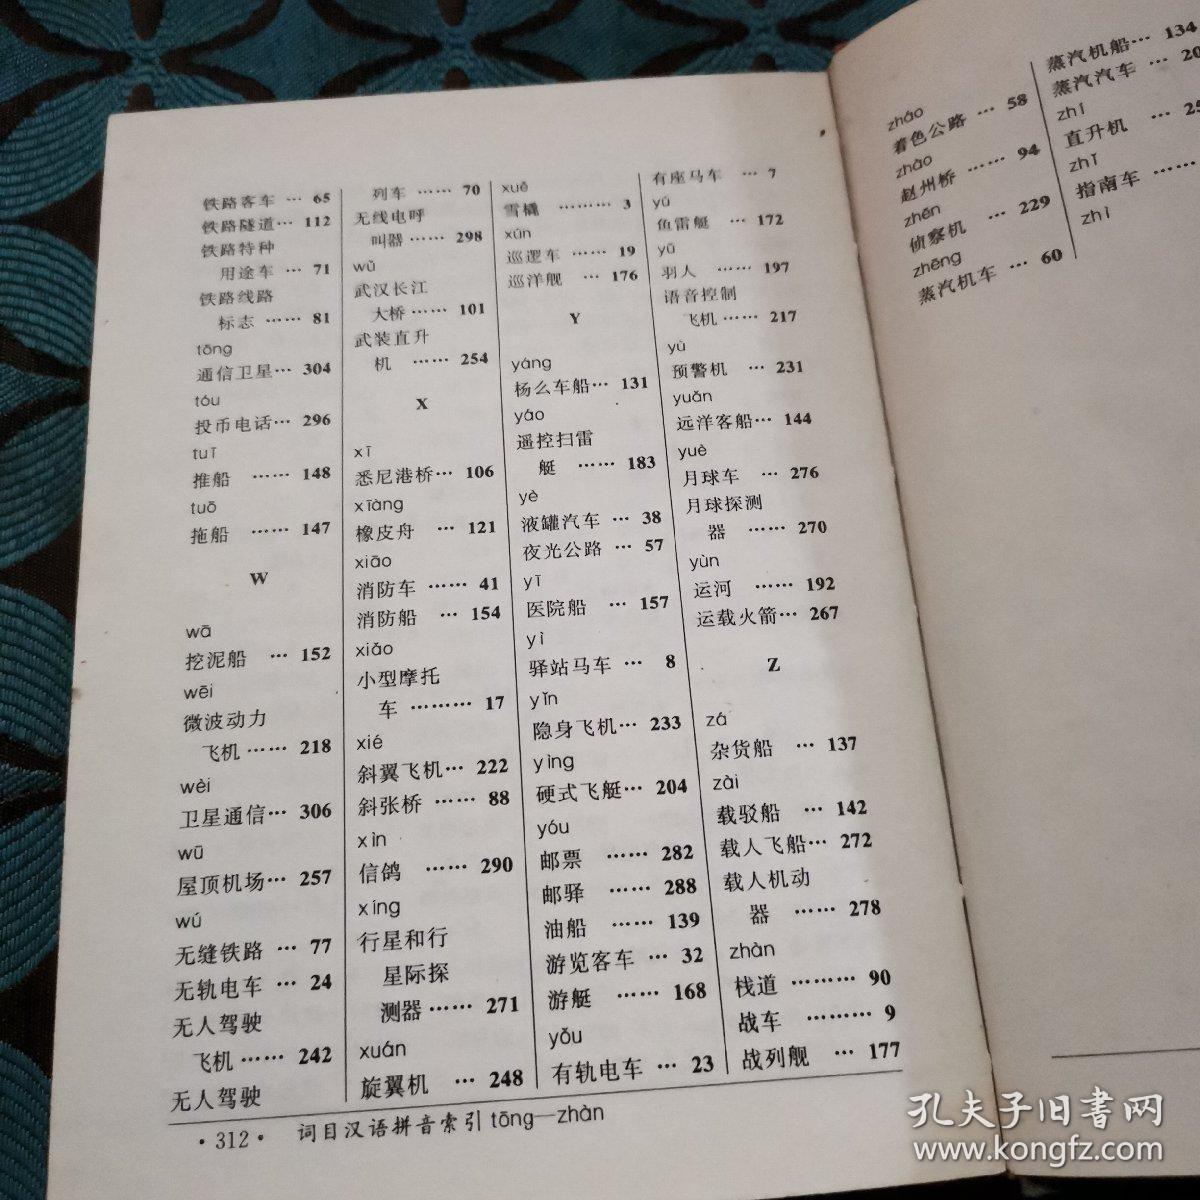 铁路客车 … 65
铁路隧道… 112
铁路特种
用途车 … 71
铁路线路
标志 …… 81
tōng
通信卫星… 304
tóu
投币电话… 296
tuī
推船 …… 148
tuō
拖船 …… 147
W
wā
挖泥船 … 152
wēi
微波动力
飞机 …… 218
wèi
卫星通信… 306
wū
屋顶机场… 257
wú
无缝铁路 … 77
无轨电车 … 24
无人驾驶
飞机 …… 242
无人驾驶
列车 …… 70
无线电呼
叫器 …… 298
wǔ
武汉长江
大桥 …… 101
武装直升
机 …… 254
X
xī
悉尼港桥… 106
xiàng
橡皮舟 … 121
xiāo
消防车 …… 41
消防船 … 154
xiǎo
小型摩托
车 ……… 17
xié
斜翼飞机… 222
斜张桥 …… 88
xìn
信鸽 …… 290
xíng
行星和行
星际探
测器 …… 271
xuán
旋翼机 … 248
xuě
雪橇 ……… 3
xún
巡逻车 …… 19
巡洋舰 … 176
Y
yáng
杨么车船… 131
yáo
遥控扫雷
艇 …… 183
yè
液罐汽车 … 38
夜光公路 … 57
yī
医院船 … 157
yì
驿站马车 … 8
yǐn
隐身飞机… 233
yìng
硬式飞艇… 204
yóu
邮票 …… 282
邮驿 …… 288
油船 …… 139
游览客车 … 32
游艇 …… 168
yǒu
有轨电车 … 23
有座马车 … 7
yú
鱼雷艇 … 172
yǔ
羽人 …… 197
语音控制
飞机 …… 217
yù
预警机 … 231
yuǎn
远洋客船… 144
yuè
月球车 … 276
月球探测
器 …… 270
yùn
运河 …… 192
运载火箭… 267
Z
zá
杂货船 … 137
zài
载驳船 … 142
载人飞船… 272
载人机动
器 …… 278
zhàn
栈道 ……… 90
战车 ……… 9
战列舰 … 177
·312· 词目汉语拼音索引 tōng—zhàn
zháo
着色公路 … 58
zhào
赵州桥 …… 94
zhēn
侦察机 … 229
zhēng
蒸汽机车 … 60
蒸汽机船… 134
蒸汽汽车 … 20
zhí
直升机 … 25
zhǐ
指南车 ……
zhì
孔夫子旧书网
www.kongfz.com